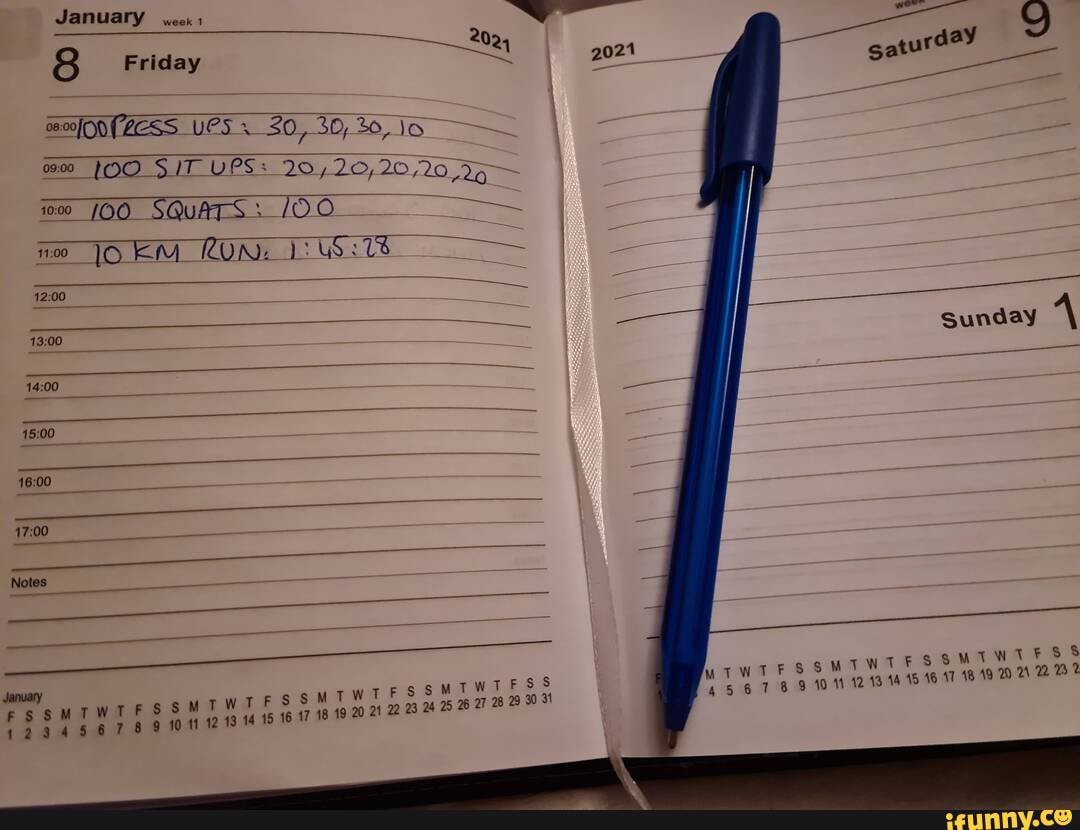 January week 1
2021
8 Friday
08:00 100 PRESS UPS: 30, 30, 30, 10
09:00 100 SIT UPS: 20, 20, 20, 20, 20
10:00 100 SQUATS: 100
11:00 10 KM RUN: 1:45:28
12:00
13:00
14:00
15:00
16:00
17:00
Notes
January
F S S M T W T F S S M T W T F S S M T W T F S S M T W T F S S
1 2 3 4 5 6 7 8 9 10 11 12 13 14 15 16 17 18 19 20 21 22 23 24 25 26 27 28 29 30 31
week
2021
Saturday 9
Sunday 1
F M T W T F S S M T W T F S S M T W T F S S
4 5 6 7 8 9 10 11 12 13 14 15 16 17 18 19 20 21 22 23 2
ifunny.co